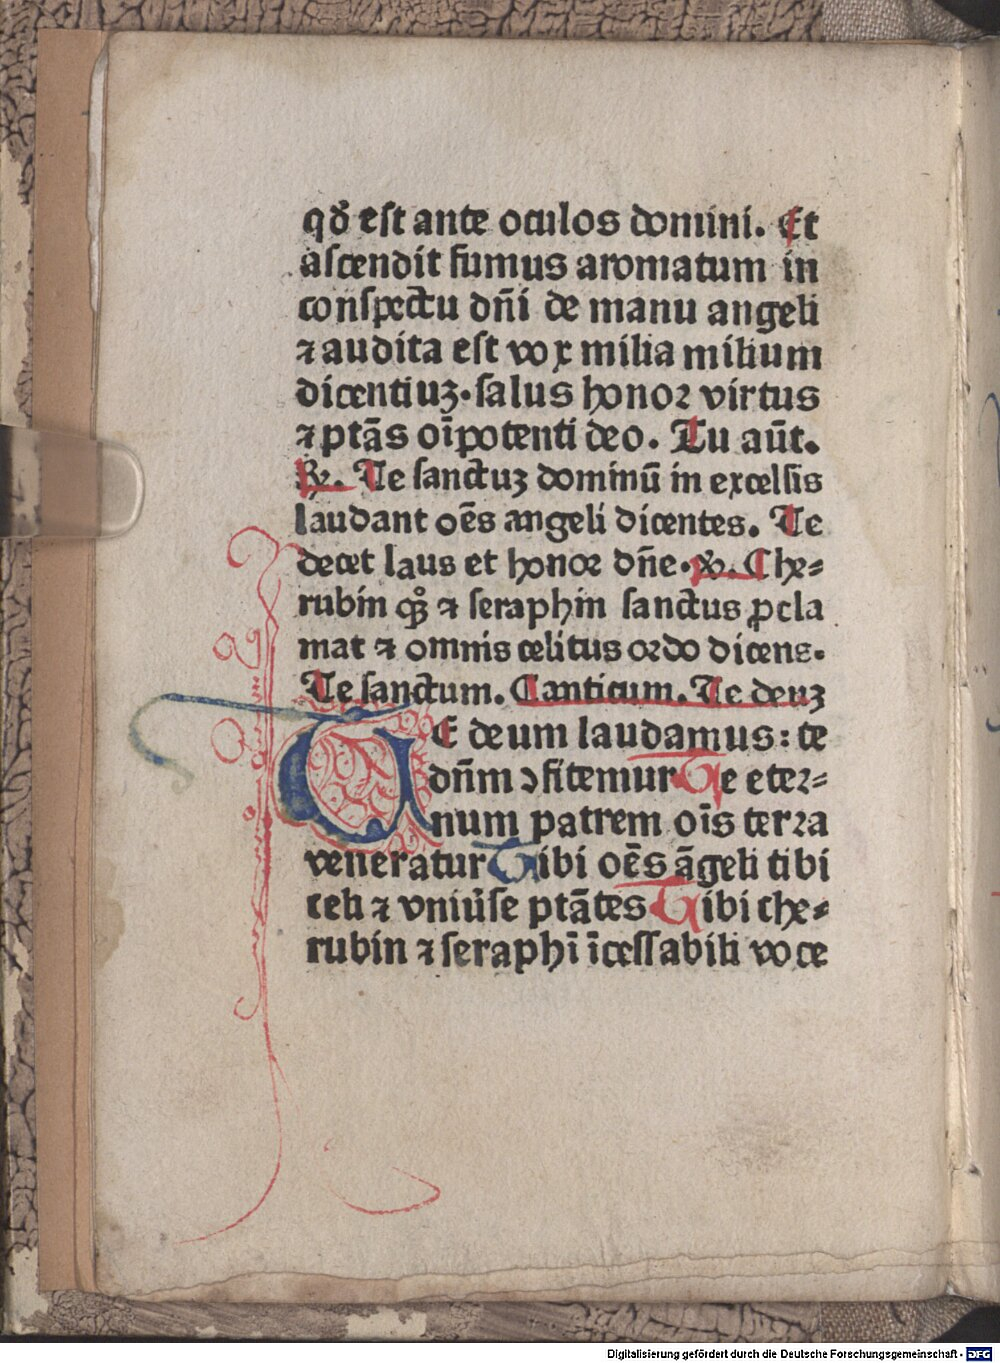 qď est ante oculos domini. Et
ascendit fumus aromatum in
conspectu dn̄i de manu angeli
⁊ audita est vox milia milium
dicentiuꝫ. salus honoꝛ virtus
⁊ ptās oī̄potenti deo. Tu aūt.
℟. Te sanctuꝫ dominū in excelsis
laudant oēs angeli dicentes. Te
decet laus et honoꝛ dn̄e. ℣. Che⸗
rubin qꝫ ⁊ seraphin sanctus ꝓcla
mat ⁊ omnis celitus oꝛdo dicens.
Te sanctum. Canticum. Te deuꝫ
TE deum laudamus: te
dn̄m ↄfitemur Te eteꝛ⸗
num patrem oīs terꝛa
veneratur Tibi oēs āgeli tibi
celi ⁊ vniu̓se ptātes Tibi che⸗
rubin ⁊ seraphī īcessabili voce
Digitalisierung gefördert durch die Deutsche Forschungsgemeinschaft - DFG